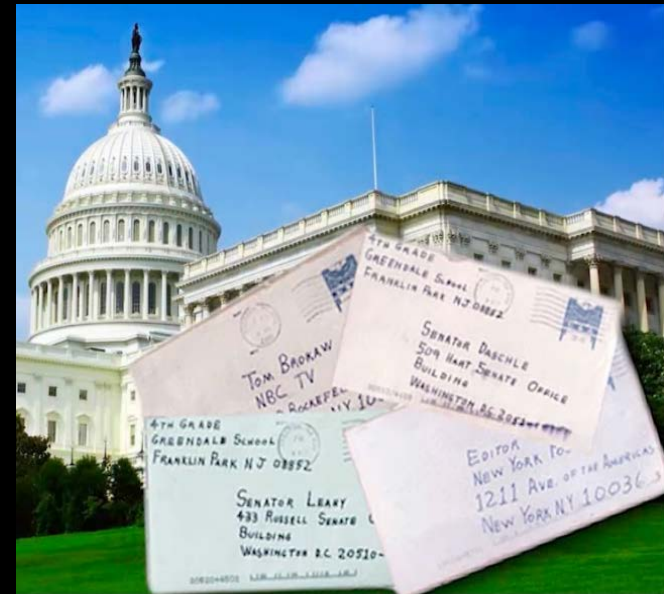 TOM BROKAW
NBC TV
NY 10
4TH GRADE
GREENDALE SCHOOL
FRANKLIN PARK NJ 08852
SENATOR DASCHLE
509 HART SENATE OFFICE
BUILDING
WASHINGTON D.C. 2051
4TH GRADE
GREENDALE SCHOOL
FRANKLIN PARK NJ 08852
SENATOR LEAHY
433 RUSSELL SENATE
BUILDING
WASHINGTON D.C. 20510-
20520+4502
EDITOR
NEW YORK
1211 AVE. OF THE AMERICAS
NEW YORK NY 10036